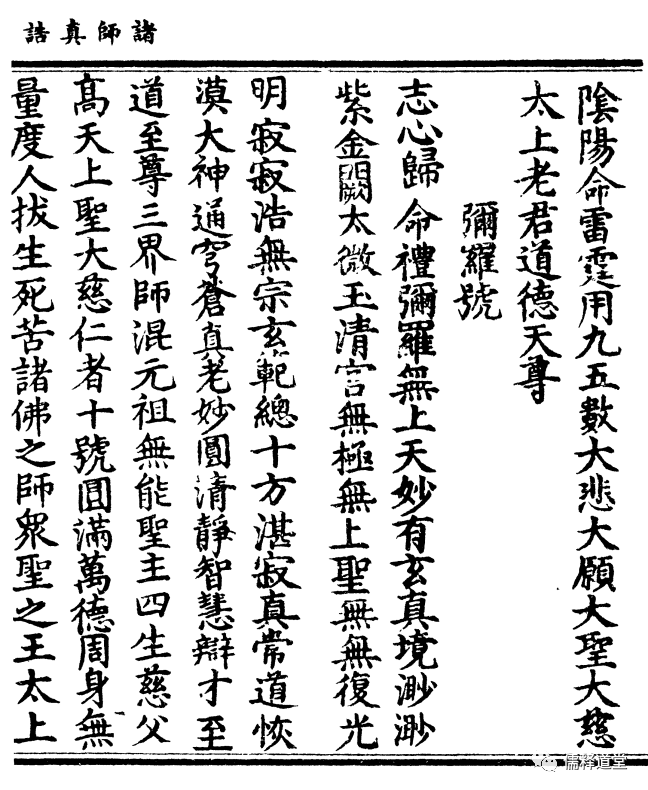 諸師真誥
陰陽命雷霆用九五數大悲大願大聖大慈
太上老君道德天尊
彌羅號
志心歸命禮彌羅無上天妙有玄真境渺渺
紫金闕太微玉清宮無極無上聖無無復光
明寂寂浩無宗玄範總十方湛寂真常道恢
漠大神通穹蒼真老妙圓清靜智慧辯才至
道至尊三界師混元祖無能聖主四生慈父
高天上聖大慈仁者十號圓滿萬德周身無
量度人拔生死苦諸佛之師眾聖之王太上
儒释道堂